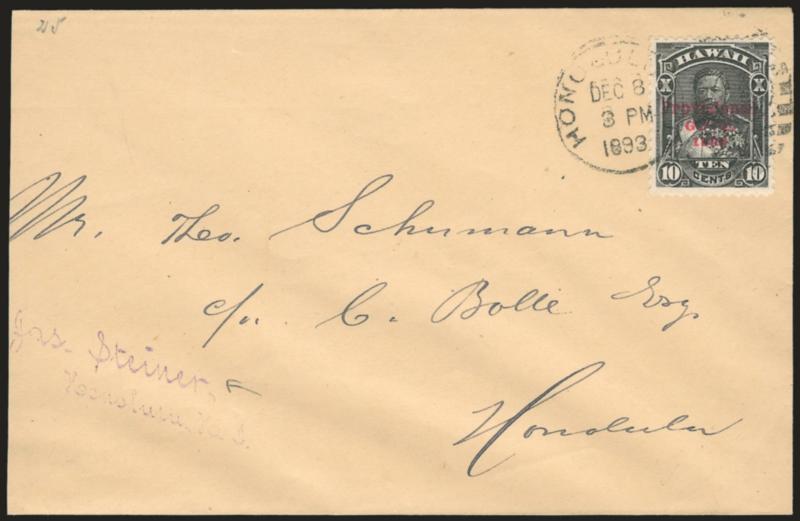 HONOLULU
DEC 8
3 PM
1893
HAWAII
X X
Provisional
Govt.
1893
TEN
10 CENTS 10
Mr. Theo. Schumann
c/o. C. Bolle Esq.
Honolulu
Jas. Steiner,
Honolulu, H. I.